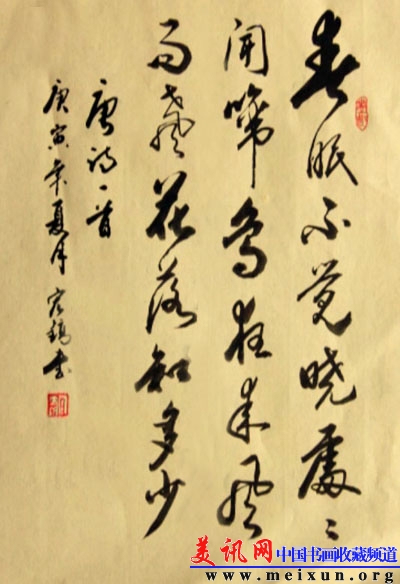 春眠不觉晓處々
闻啼鸟夜来风
雨声花落知多少
唐诗一首
庚寅年夏月 书
美讯网 中国书画收藏频道
www.meixun.org